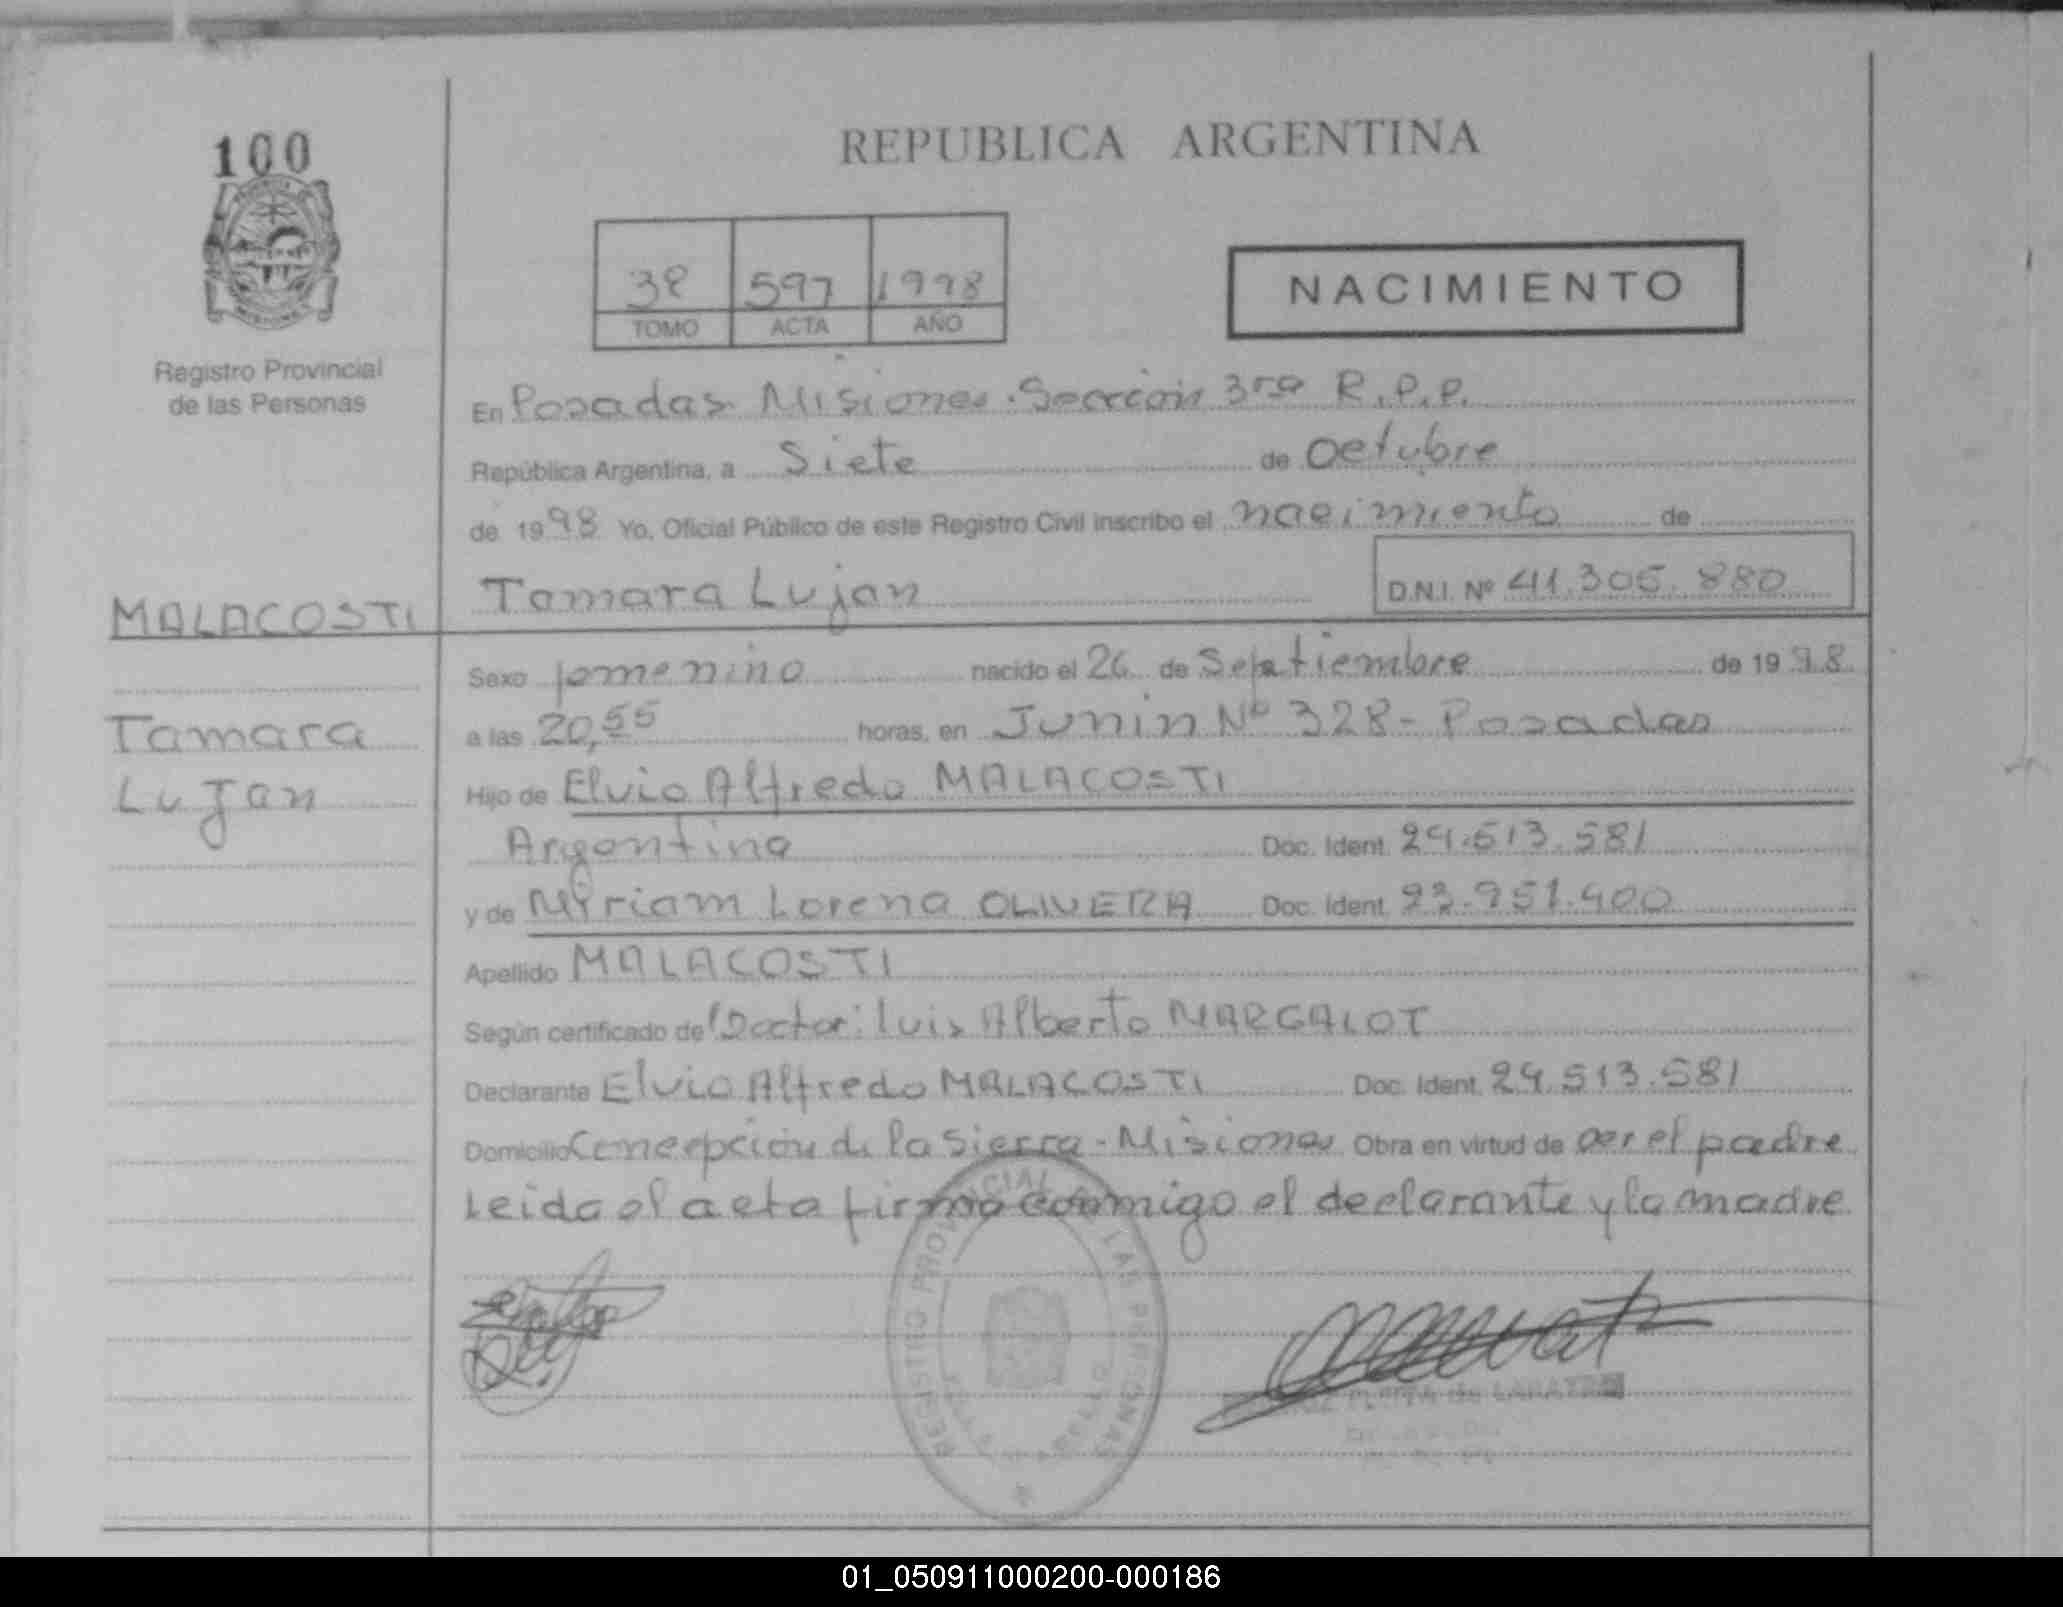 100
REPUBLICA ARGENTINA
38 597 1998
TOMO ACTA AÑO
NACIMIENTO
Registro Provincial
de las Personas
En Posadas Misiones. Sección 3ra R.P.P.
República Argentina, a Siete de Octubre
de 1998 Yo, Oficial Público de este Registro Civil inscribo el nacimiento de
Tamara Lujan D.N.I. Nº 41.305.880
MALACOSTI
Sexo femenino nacido el 26 de Septiembre de 1998
Tamara
a las 20,55 horas, en Junin Nº 328 - Posadas
Lujan
Hijo de Elvio Alfredo MALACOSTI
Argentina Doc. Ident. 24.513.581
y de Myriam Lorena OLIVERA Doc. Ident. 23.951.400
Apellido MALACOSTI
Según certificado de Doctor: Luis Alberto MARGALOT
Declarante Elvio Alfredo MALACOSTI Doc. Ident. 24.513.581
Domicilio Concepción de la Sierra - Misiones Obra en virtud de ser el padre
Leida el acta firma conmigo el declarante y la madre
REGISTRO PROVINCIAL DE LAS PERSONAS
de LABAT
01_050911000200-000186